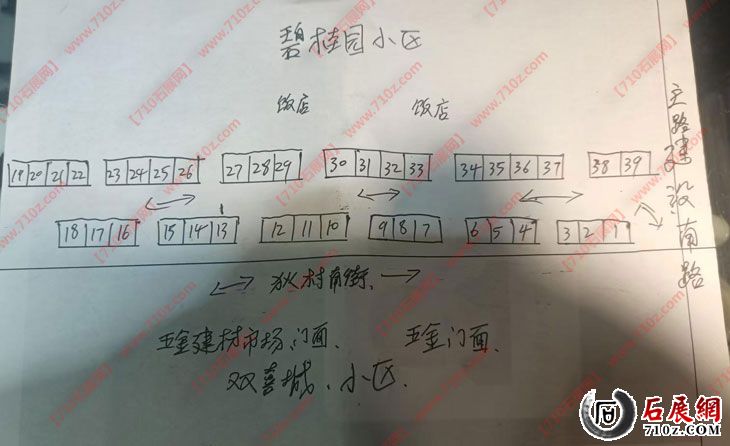 碧桂园小区
饭店 饭店
19 20 21 22 23 24 25 26 27 28 29 30 31 32 33 34 35 36 37 38 39
18 17 16 15 14 13 12 11 10 9 8 7 6 5 4 3 2 1
主路建设南路
狄村南街、
五金建材市场门面、 五金门面、
双喜城、小区、
【710石展网】www.710z.com
石展網
710Z.COM